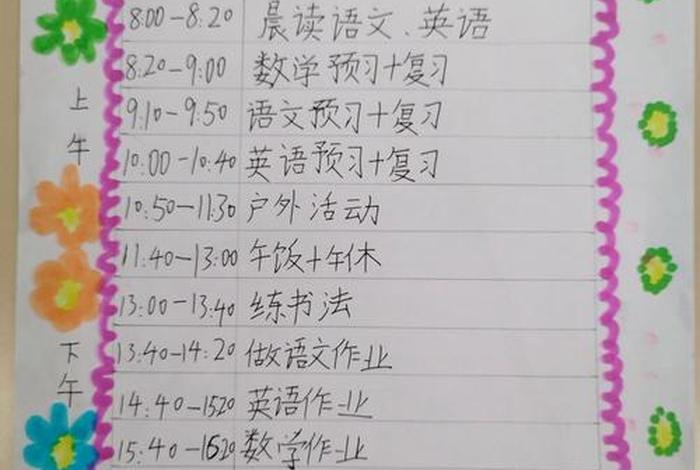 8:00-8:20 晨读语文、英语
8:20-9:00 数学预习+复习
上午
9:10-9:50 语文预习+复习
10:00-10:40 英语预习+复习
10:50-11:30 户外活动
11:40-13:00 午饭+午休
13:00-13:40 练书法
下午
13:40-14:20 做语文作业
14:40-1520 英语作业
15:40-1620 数学作业